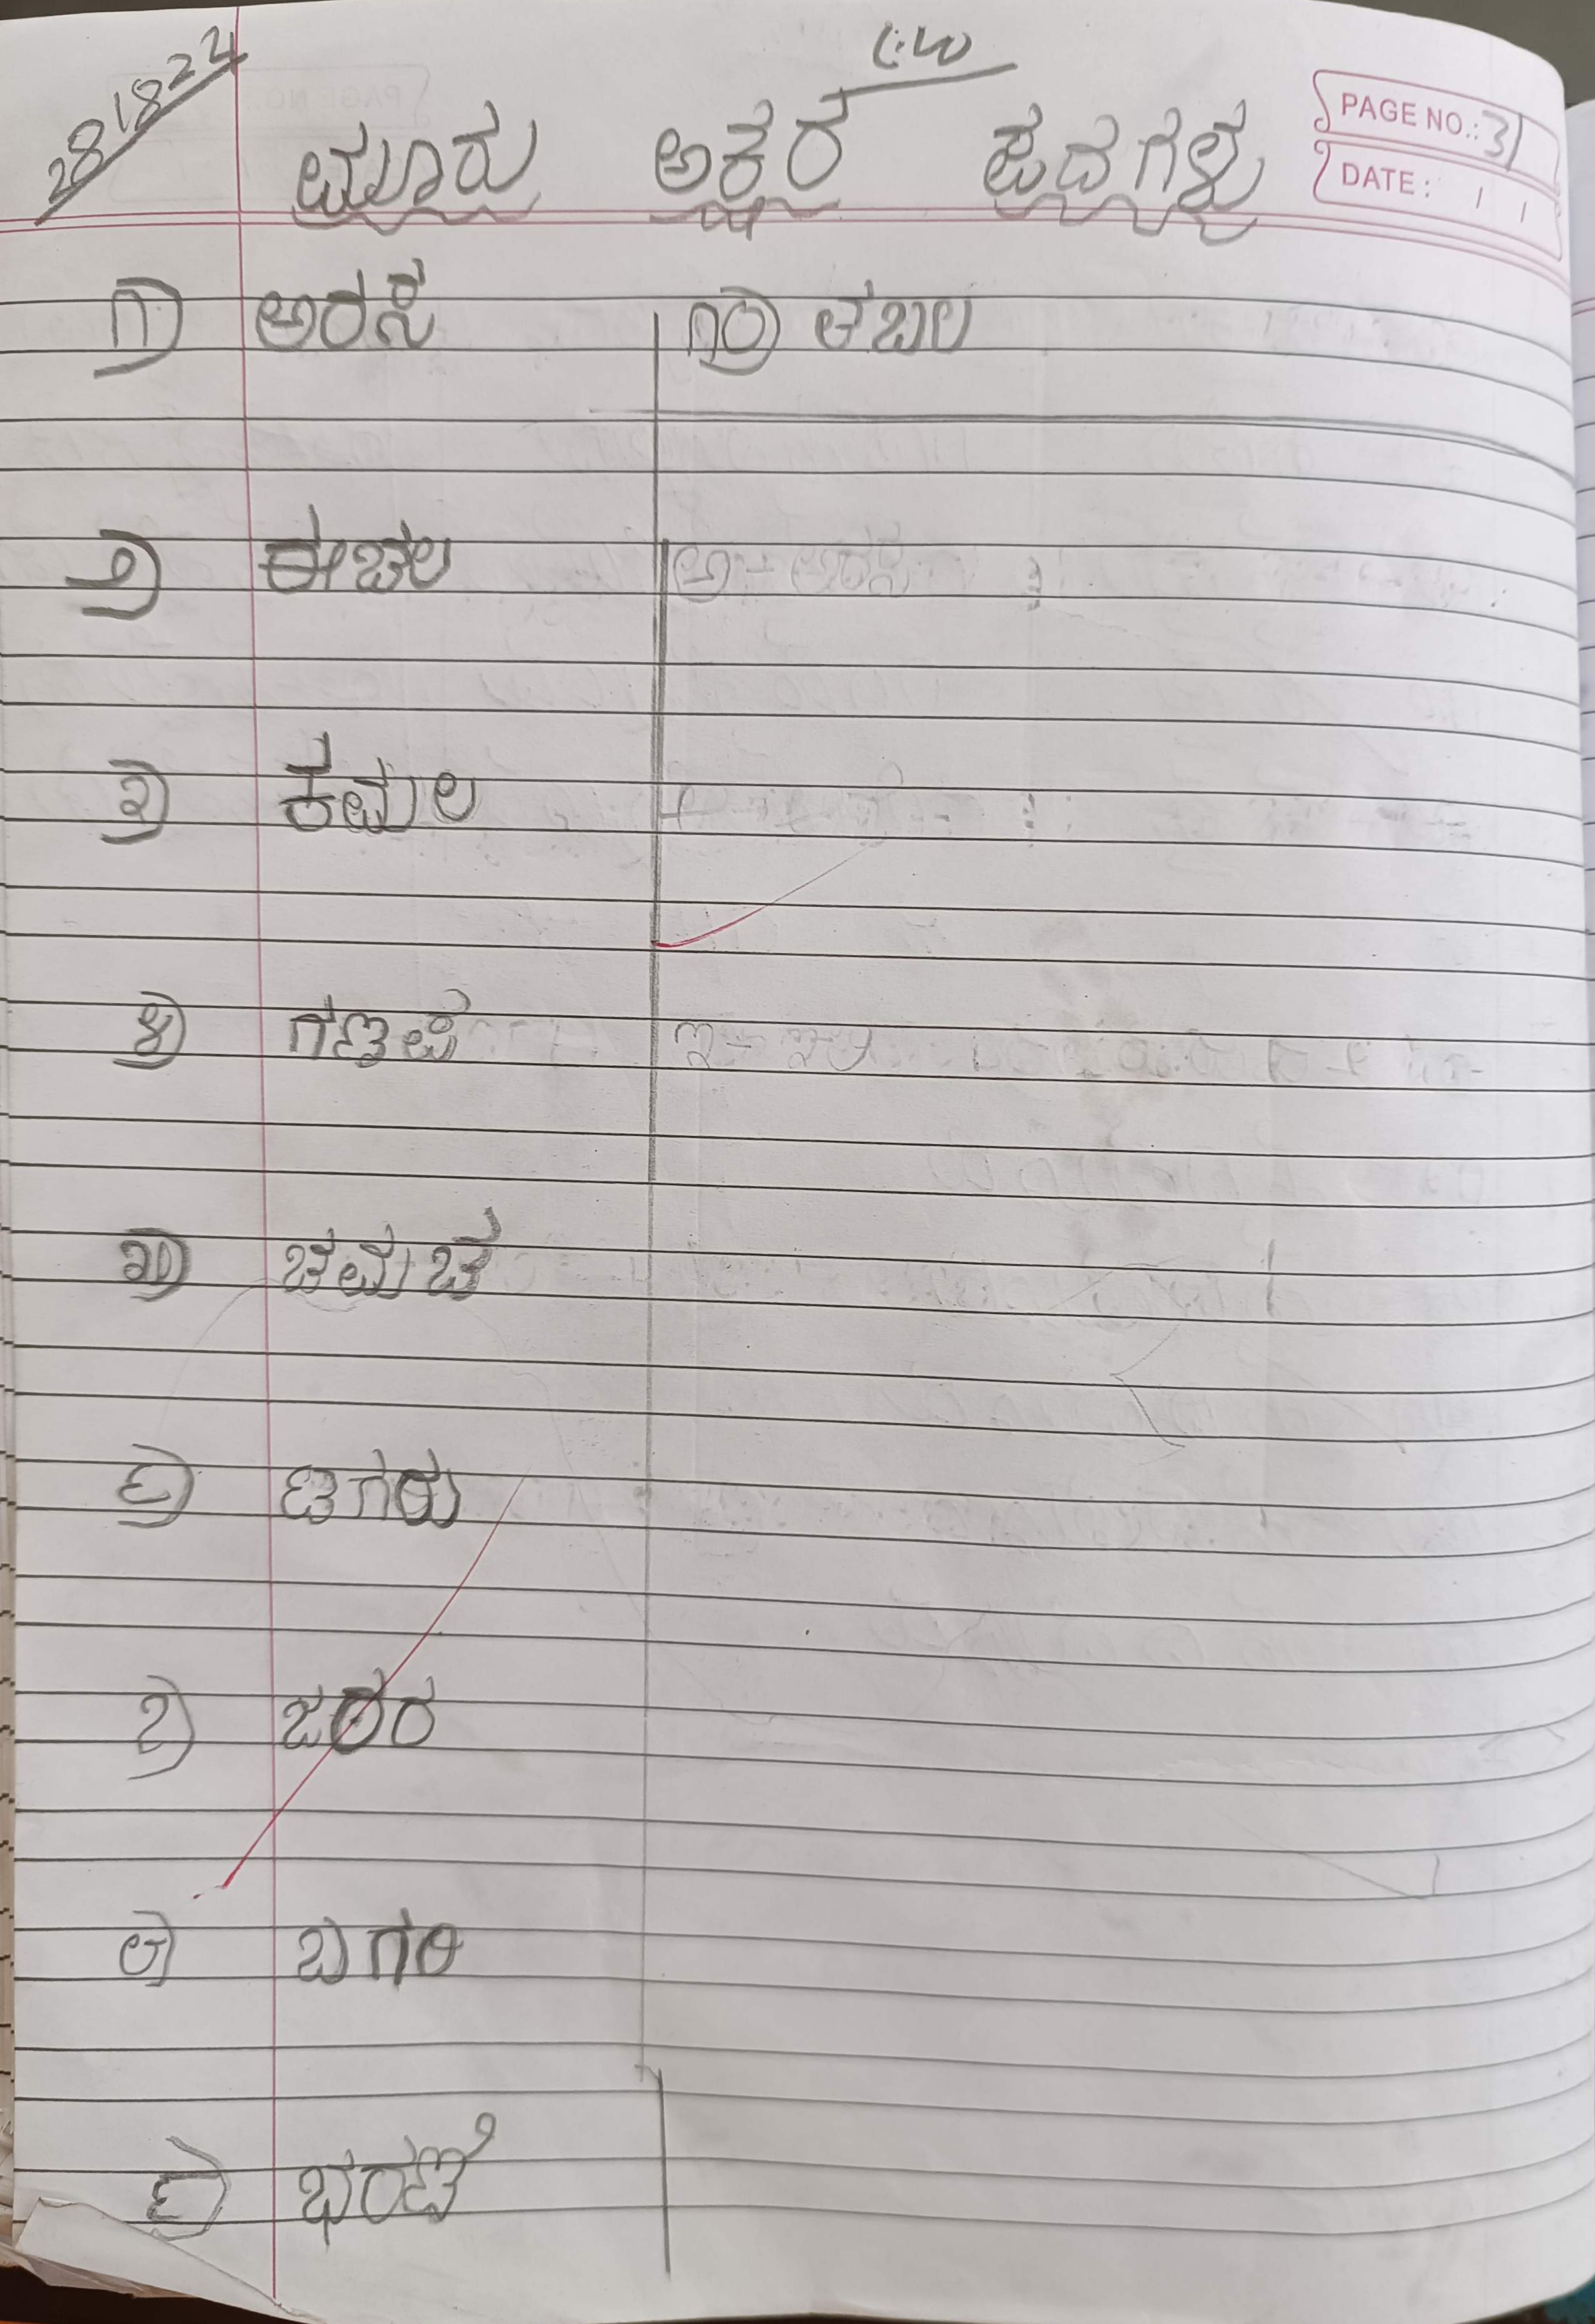 28/8/24
C.W
PAGE NO.: 31
DATE: / /
ಮೂರು ಅಕ್ಷರ ಪದಗಳು
೧) ಅರಸ
೧೦) ತಬಲ
೨) ಈಚಲ
೩) ಕಮಲ
೪) ಗಣಪ
೫) ಚಮಚ
೬) ಟಗರು
೭)
೮)
೯) ಭರಣಿ